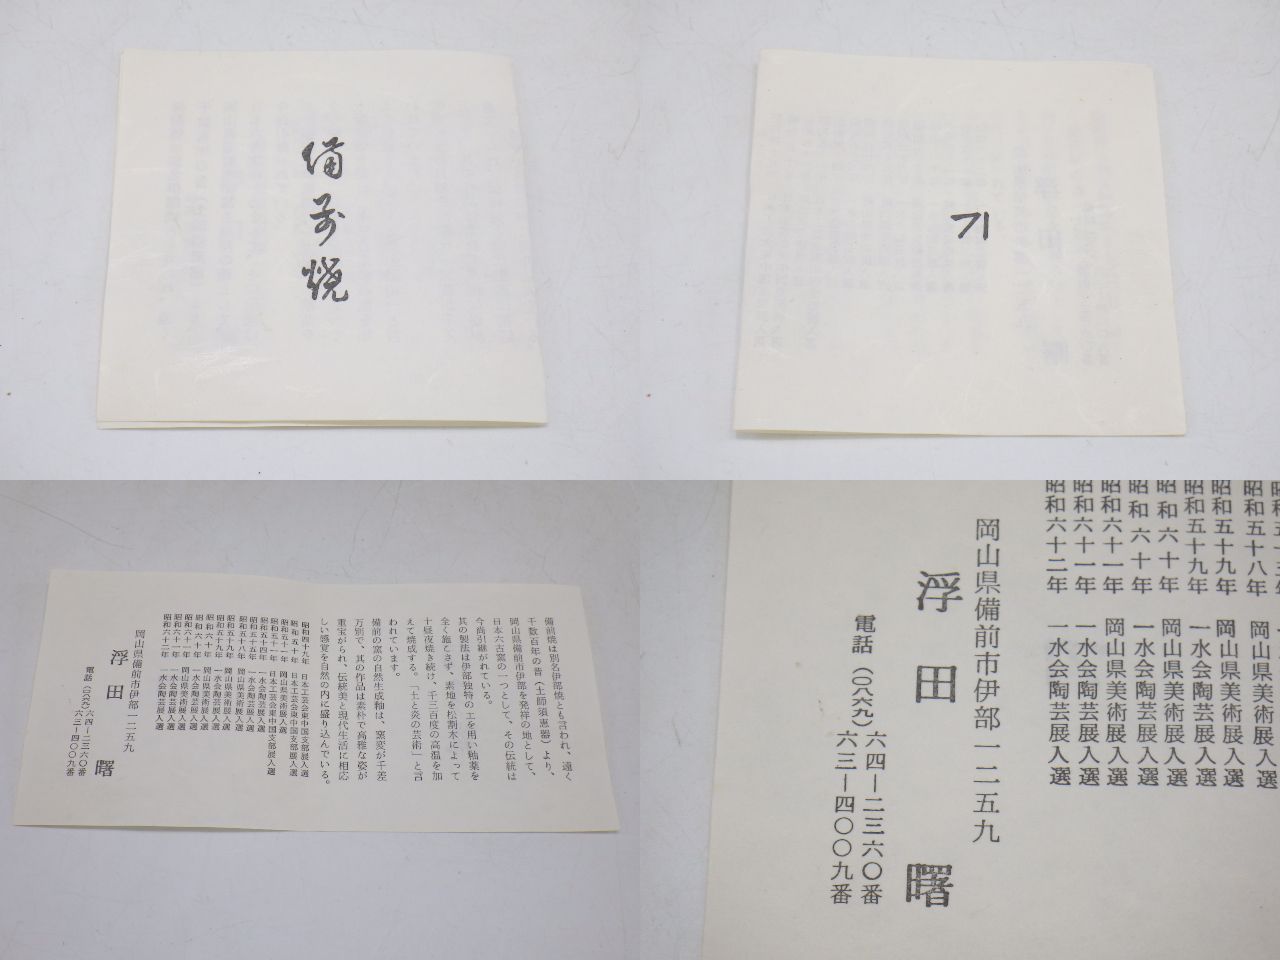 備前焼
備前焼は別名伊部焼とも言われ、遠く
千数百年の昔（土師須恵器）より、
岡山県備前市伊部を発祥の地として、
日本六古窯の一つとして、その伝統は
今尚引継がれている。
其の製法は伊部独特の土を用い釉薬を
全く施こさず、素地を松割木によって
十昼夜焼き続け、千三百度の高温を加
えて焼成する。「土と炎の芸術」と言
われています。
備前の窯の自然生成釉は、窯変が千差
万別で、其の作品は素朴で高雅な姿が
重宝がられ、伝統美と現代生活に相応
しい感覚を自然の内に盛り込んでいる。
昭和四十九年 日本工芸会東中国支部展入選
昭和五十年 日本工芸会東中国支部展入選
昭和五十一年 岡山県美術展入選
昭和五十一年 日本工芸会東中国支部展入選
昭和五十四年 一水会陶芸展入選
昭和五十五年 一水会陶芸展入選
昭和五十八年 岡山県美術展入選
昭和五十九年 岡山県美術展入選
昭和五十九年 一水会陶芸展入選
昭和六十年 岡山県美術展入選
昭和六十年 一水会陶芸展入選
昭和六十一年 岡山県美術展入選
昭和六十一年 一水会陶芸展入選
昭和六十二年 一水会陶芸展入選
岡山県備前市伊部一二五九
浮田 曙
電話（〇八六九）六四ー二三六〇番
六三ー四〇〇九番
昭和五十八年 岡山県美術展入選
昭和五十九年 岡山県美術展入選
昭和五十九年 一水会陶芸展入選
昭和六十年 岡山県美術展入選
昭和六十年 一水会陶芸展入選
昭和六十一年 岡山県美術展入選
昭和六十一年 一水会陶芸展入選
昭和六十二年 一水会陶芸展入選
岡山県備前市伊部一二五九
浮田 曙
電話（〇八六九）六四ー二三六〇番
六三ー四〇〇九番